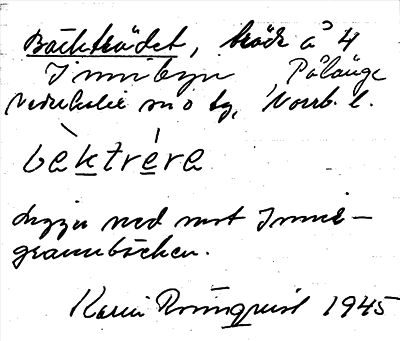 Bäckträdet, träde å 4
Innibyn Pålänge
Nederkalix sn o tg, Norrb. l.
bèktrére
Ligger ned mot Innie-
grannbäcken.
Karin Rönnquist 1945